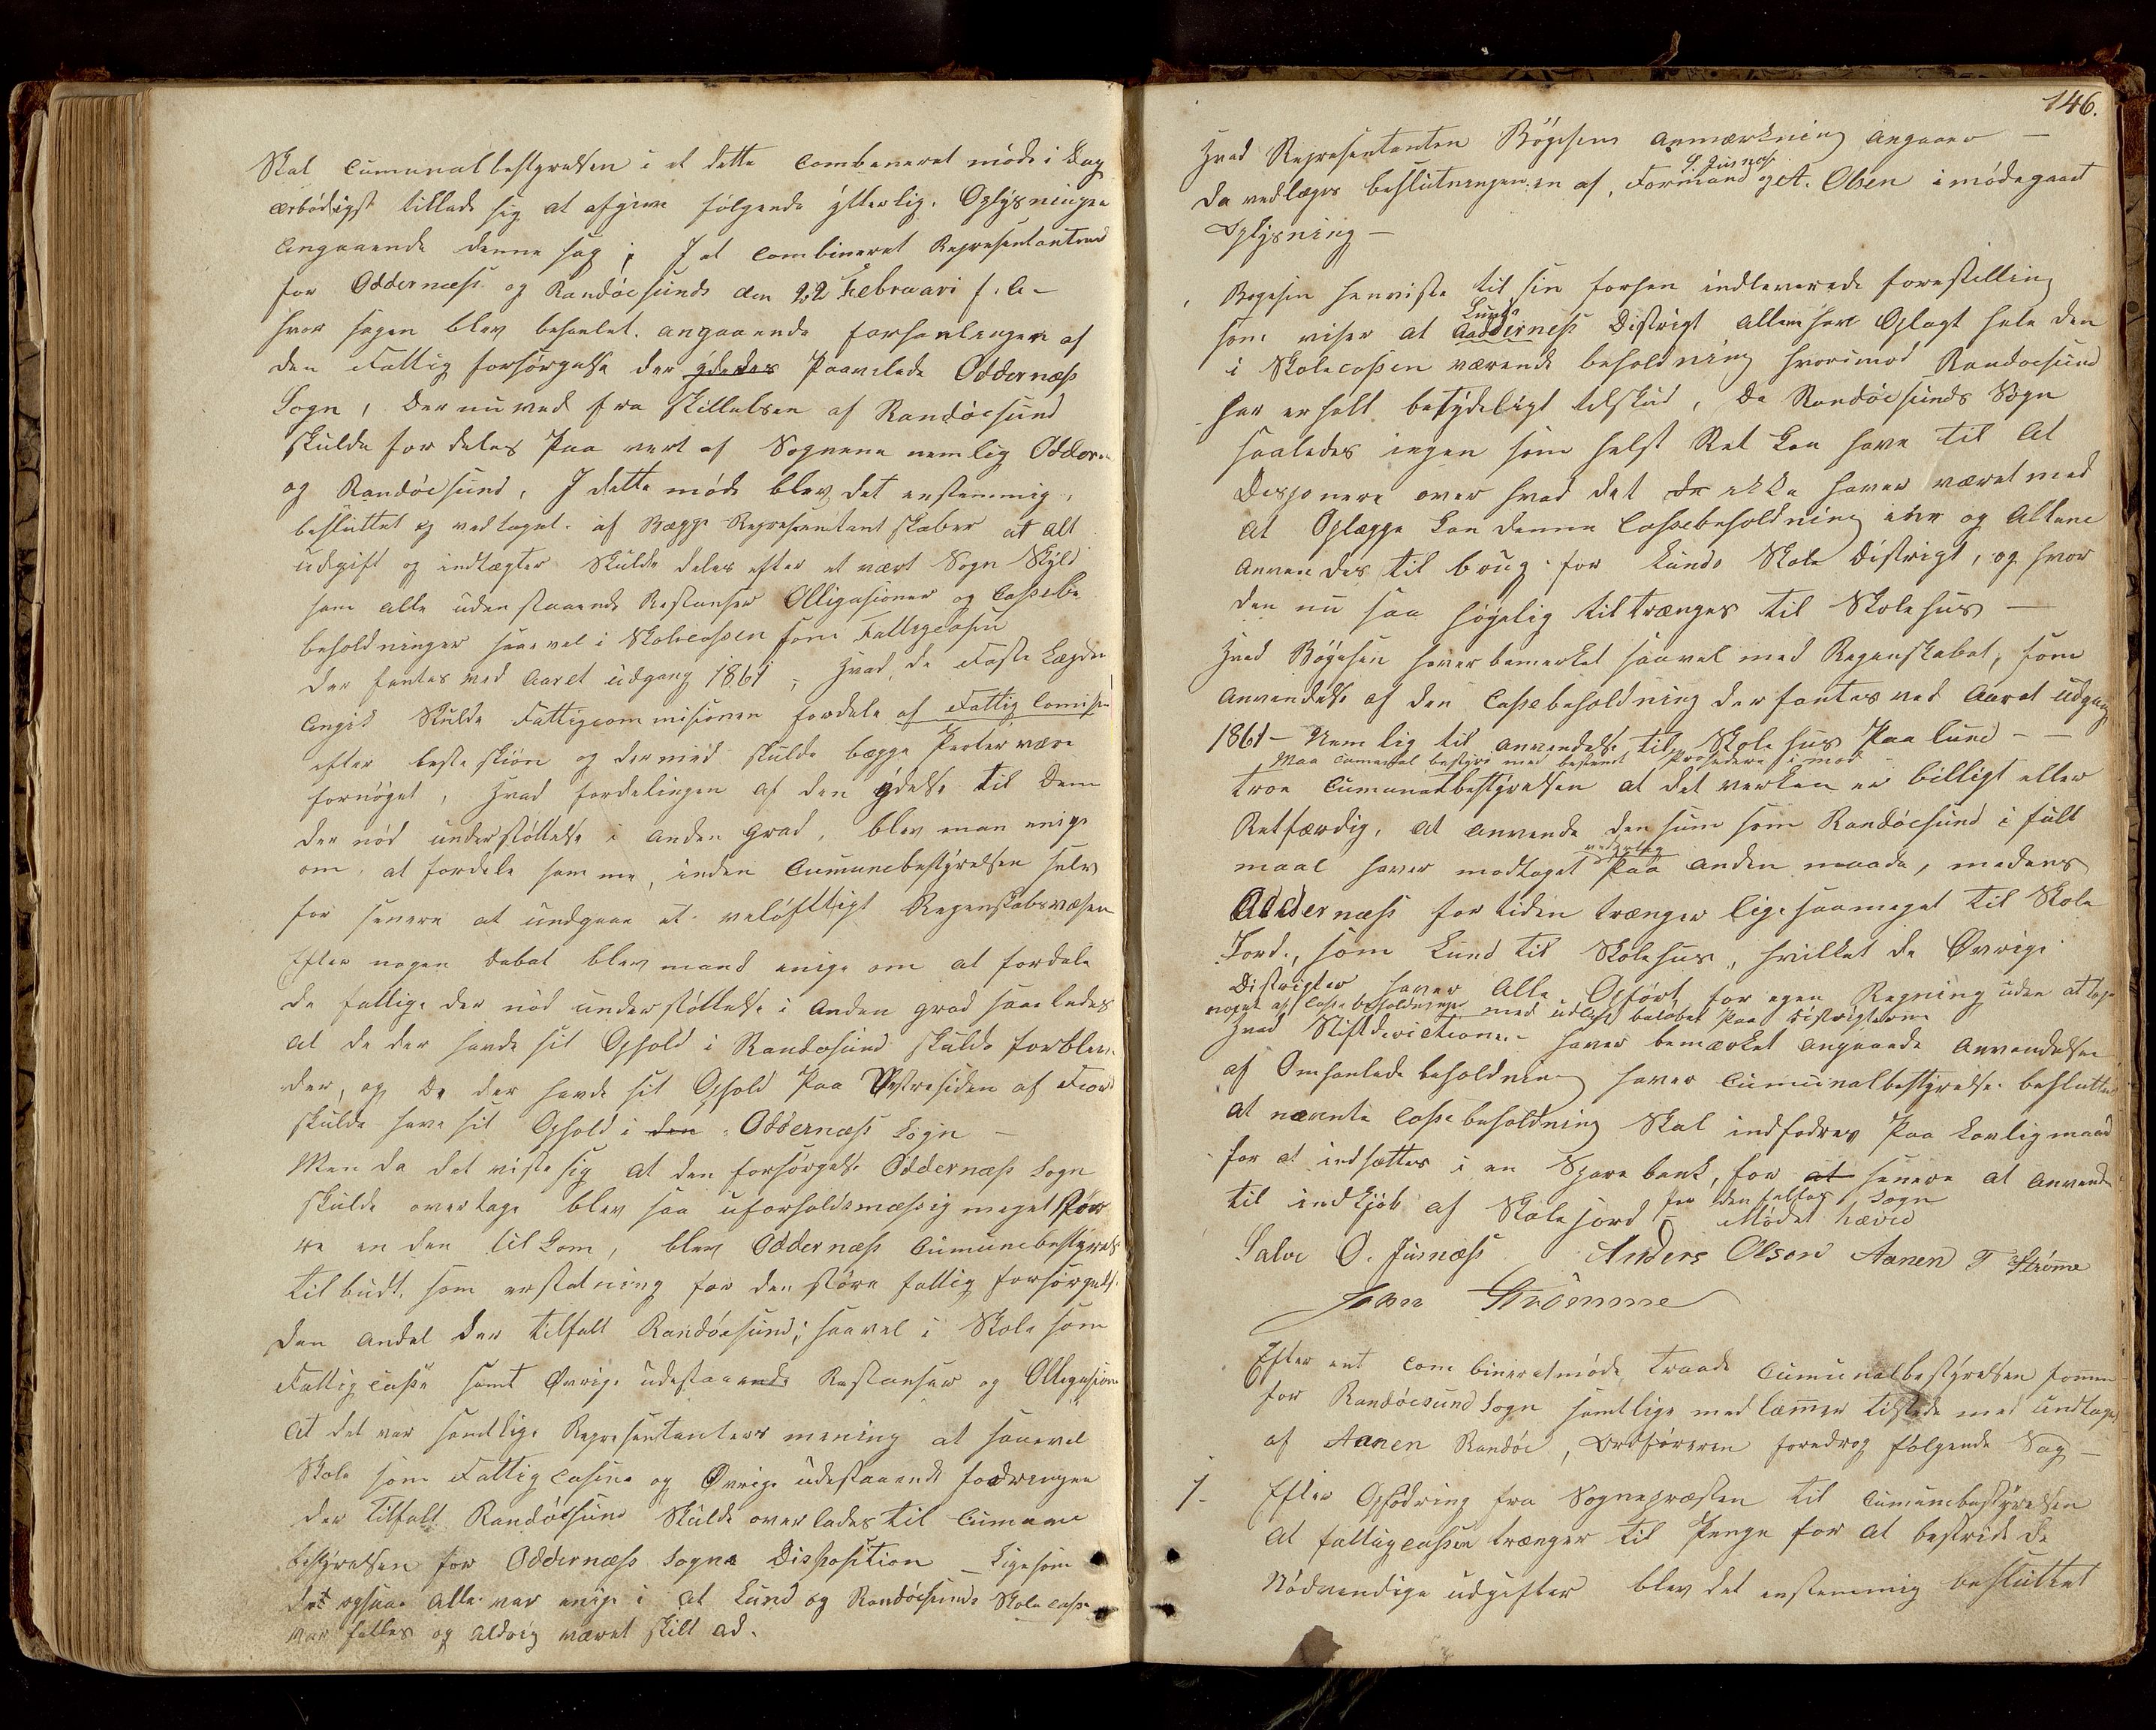 Skal Cumunalbestyrelsen i et dette Combeneret möde i Dag
ærbödigst tillade sig at afgive fölgende ÿtterlig. Oplÿsninger
Angaaende denne sag ; I et Combineret Representantmöd
for Oddernæss og Randöesunds den 22 Februari f. A –
hvor sagen blev behanlet. angaaende forhanlingen af
den Fattig forsörgelse der ÿdedes Paavelede Oddernæss
Sogn, der nu ved fra Skillelsen af Randöesund
skulde for deles Paa vert af Sognene nemlig Oddern.
og Randöesund, I dette möde blev det enstemmig,
besluttet og vedtaget. af Begge Representantskaber at alt
udgift og indtægter Skulde deles efter et vært Sogn Skÿld
som alle uden staaende Restanser Olligasioner og Cassebe
beholdninger saavel i Skolecassen som Fattigcasen
der fantes ved Aaret udgang 1861 ; Hvad, de Faste Lægder
Angik Skulde Fattigcommisionen fordele af Fattig Comisen
efter beste skiön og dermed skulde begge Parter være
fornöget, Hvad fordelingen af den ÿdelse til Dem
der nöd understöttelse i Anden Grad, blev man enige
om, at fordele samme, inden Cumunebestÿrelsen selv
for senere at undgaae et velöftigt Regenskabsvæsen
Efter nogen Debat blev mand enige om at fordele
de fattige der nöd understöttelse i Anden grad saaledes
at de der havde sit Ophold i Randösund skulde forblev.
der, og De der havde sit Ophold Paa Vestresiden af Fior
skulde have sit Ophold i den Oddernæss Sogn –
Men da det viste sig at den forsörgelse Oddernæss Sogn
skulde overtage blev saa uforholdsmæssig meget Stör
re en den til kom, blev Oddernæss Cumunebestÿrels
tilbudt. som erstatning for den störe fattig forsörgels.
den Andel der tilfalt Randöesund; saavel i Skole som
Fattigcasse samt Övrige udestaaende Restanser og Olligasion
At det var samtlige Representanters mening at saavel
Skole som Fattigcasene og Övrige udestaaende fordringer
der Tilfalt Randöesund Skulde overlades til Cumune
bestÿrelsen for Oddernæss Sogne Disposition – Ligesom
det ogsaa Alle var enige i at Lund og Randösunds Skolecasse
var felles og Aldrig været skilt ad.
146.
Hvad Representanten Bögesens anmærkning angaaer –
S Jusnæs
da vedlæges beslutningen.en af, Formand og A. Olsen imödegaaet
Oplÿsning –
Bögesen henviste til sin forhen indleverede forestilling
Lunds
som viser at Aadderness Distrigt Allene har Oplagt hele den
i Skolecassen værende beholdning hvorimod Randoesund
har erholt betÿdeligt tilskud, da Randöesunds Sogn
saaledes ingen som helst Ret kan have til At
Disponere over hvad det de ikke haver været med
at Oplægge kan denne Cassebeholdning ene og Allene
Anvendes til boug for Lunds Skole Distrigt, og hvor
den nu saa höÿelig tiltrænges til Skolehus –
Hvad Bögesen haver bemerket saavel med Regenskabet, som
Anvendelse af den Cassebeholdning der fantes ved Aaret udgang
1861 – Nemlig til anvendelse til Skolehus Paa Lund – –
Maa Cumunal bestÿre med bestemt Prosedere imod
troe Cumunalbestÿrelsen at det verken er billigt eller
Retfærdig, at anvende den sum som Randöesund i fult
vederlag
maal haver modtaget Paa anden maade, medens
Addernæss for tiden trænger ligesaameget til Skole
Jord., som Lund til Skolehus, hvilket de Övrige
Distrigter haver Alle Opfört for egen Regning uden at tage
noget af Casse beholdningen med udligt belöbet Paa Distrigterne
Hvad Stiftdirictionen haver bemærket angaaende Anvendelsen
af Omhanlede beholdning haver Cumunalbestÿrelse besluttet
at nævnte Cassebeholdning Skal indfodres Paa Lovlig maade
for at indsættes i en Sparebank, for at senere at Anvende
for den felles Sogn
til indkjöb af Skolejord – Mödet hævet
Salve O. Jusnæss Anders Olsen Aanen T Strömme
Joan Strömme
Efter ent Combineretmöde traade Cumunalbestÿrelsen sammen
for Randöesund Sogn samtlige medlæmer tilstede med undtage
af Aanen Randöe, Ordföreren foredrog fölgende Sag –
1. Efter Opfodring fra Sognepræsten til Cumunebestÿrelsen
At fattigcassen trænger til Penge for at bestride de
Nödvendige udgifter blev det enstemmig besluttet